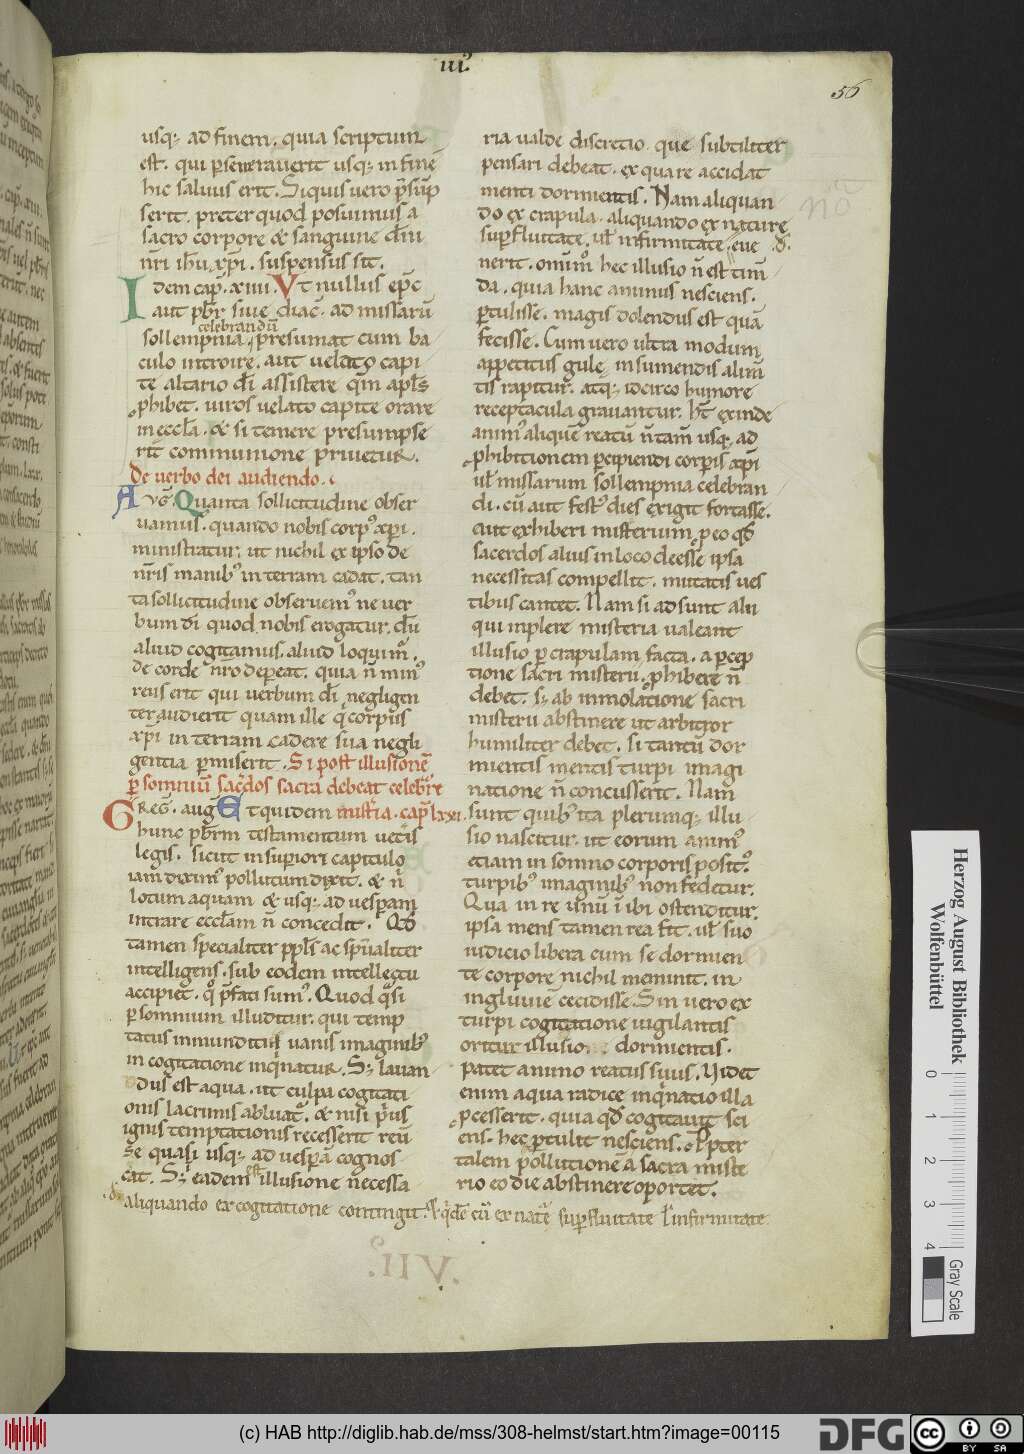 III
56
usq; ad finem. quia scriptum
est. qui pseneraverit usq; in finē
hic saluus erit. Siquis uero p̄sūp
serit. preter quod posuimus a
sacro corpore & sanguine dn̄i
nr̄i ihū xp̄i. suspensus sit.
Idem cap. xiiii. Vt nullus ep̄c
aut pbr̄ siue diac̄. ad missarū
celebrandū
sollempnia presumat cum ba
culo introire. aut uelato capi
te altario dī assistere qm̄ apl̄s
phibet. uiros uelato capite orare
in eccl̄a. & si temere presumpse
rit communione priuetur.
De uerbo dei audiendo.
Avḡ. Quanta sollicitudine obser
uamus. quando nobis corpꝰ xp̄i.
ministratur. ut nichil ex ipso de
nr̄is manibꝰ in terram cadat. tan
ta sollicitudine obseruemꝰ ne uer
bum dī quod nobis erogatur. dū
aliud cogitamus. aliud loquimꝰ.
de corde nr̄o depereat. quia n̄ minꝰ
reus erit qui uerbum dī negligen
ter audierit quam ille q̄ corpus
xp̄i in terram cadere sua negli
gentia pmiserit. Si post illusionē
p somniū sac̄dos sacra debeat celebr̄re
Greḡ. aug Et quidem mist̄ia. cap̄ lxxi.
hunc pbr̄m testamentum uet̄is
legis. sicut in supiori capitulo
iam diximꝰ pollutum dixit. & n̄
lotum aquam & usq; ad uesp̄am
intrare eccl̄am n̄ concedit. Qd̄
tamen specialiter pp̄ls ac sp̄ualiter
intelligens. sub eodem intellectu
accipiet. q̄ p̄fati sumꝰ. Quod q̄si
p somnium illuditur. qui temp
tatus inmunditia uanis imaginibꝰ
in cogitatione inq̄natur. S; lauan
dus est aqua. ut culpa cogitati
onis lacrimis abluat̄. & nisi p̄us
ignis temptationis recesserit reū
se quasi usq; ad uesp̄ā cognos
cat. S; eadem est illusione necessa
ria ualde discretio. que subtiliter
pensari debeat. ex qua re accidat
menti dormientis. Nam aliquan
do ex crapula. aliquando ex nature
supfluitate. ul̄ infirmitate. eue
nerit. omīm̄ hec illusio n̄ est tim̄
da. quia hanc animus nesciens.
ptulisse. magis dolendus est quā
fecisse. Cum uero ultra modum
appetitus gule in sumendis alim̄
tis rapitur. atq; idcirco humore
receptacula grauantur. ht̄ exinde
animꝰ aliquē reatū n̄ tam̄ usq; ad
phibitionem percipiendi corpis xp̄i
ul̄ missarum sollempnia celebran
di. cū aut festꝰ dies exigit fortasse.
aut exhiberi misterium p eo qd̄
sacerdos alius in loco deesse ipsa
necessitas compellit. mutatis ues
tibus cantet. Nam si adsunt alii
qui inplere misteria ualeant
illusio p crapulam facta. a pcep
tione sacri misterii. phibere n̄
debet. s; ab inmolatione sacri
misterii abstinere ut arbitror
humiliter debet. si tantū dor
mientis mentis turpi imagi
natione n̄ concusserit. Nam
sunt quibꝰ ita plerumq; illu
sio nascitur. ut eorum animꝰ
etiam in somno corporis positꝰ.
turpibꝰ imaginibꝰ non fedetur.
Qua in re unū ibi ostenditur.
ipsa mens tamen rea sit. ul̄ suo
iudicio libera cum se dormien
te corpore nichil meminit. in
ingluuie cecidisse. Sin uero ex
turpi cogitatione uigilantis
oritur illusio dormientis.
patet animo reatus suus. Videt
enim a qua radice inq̄natio illa
pcesserit. quia qd̄ cogitauit sci
ens. hec ptulit nesciens. Ppter
talem pollutionē a sacra miste
rio eo die abstinere oportet.
aliquando ex cogitatione contingit. & q̄dē cū ex nat̄e supfluitate l̄ infirmitate
VII.
Herzog August Bibliothek
Wolfenbüttel
0 1 2 3 4
Gray Scale
(c) HAB http://diglib.hab.de/mss/308-helmst/start.htm?image=00115
DFG
cc BY SA